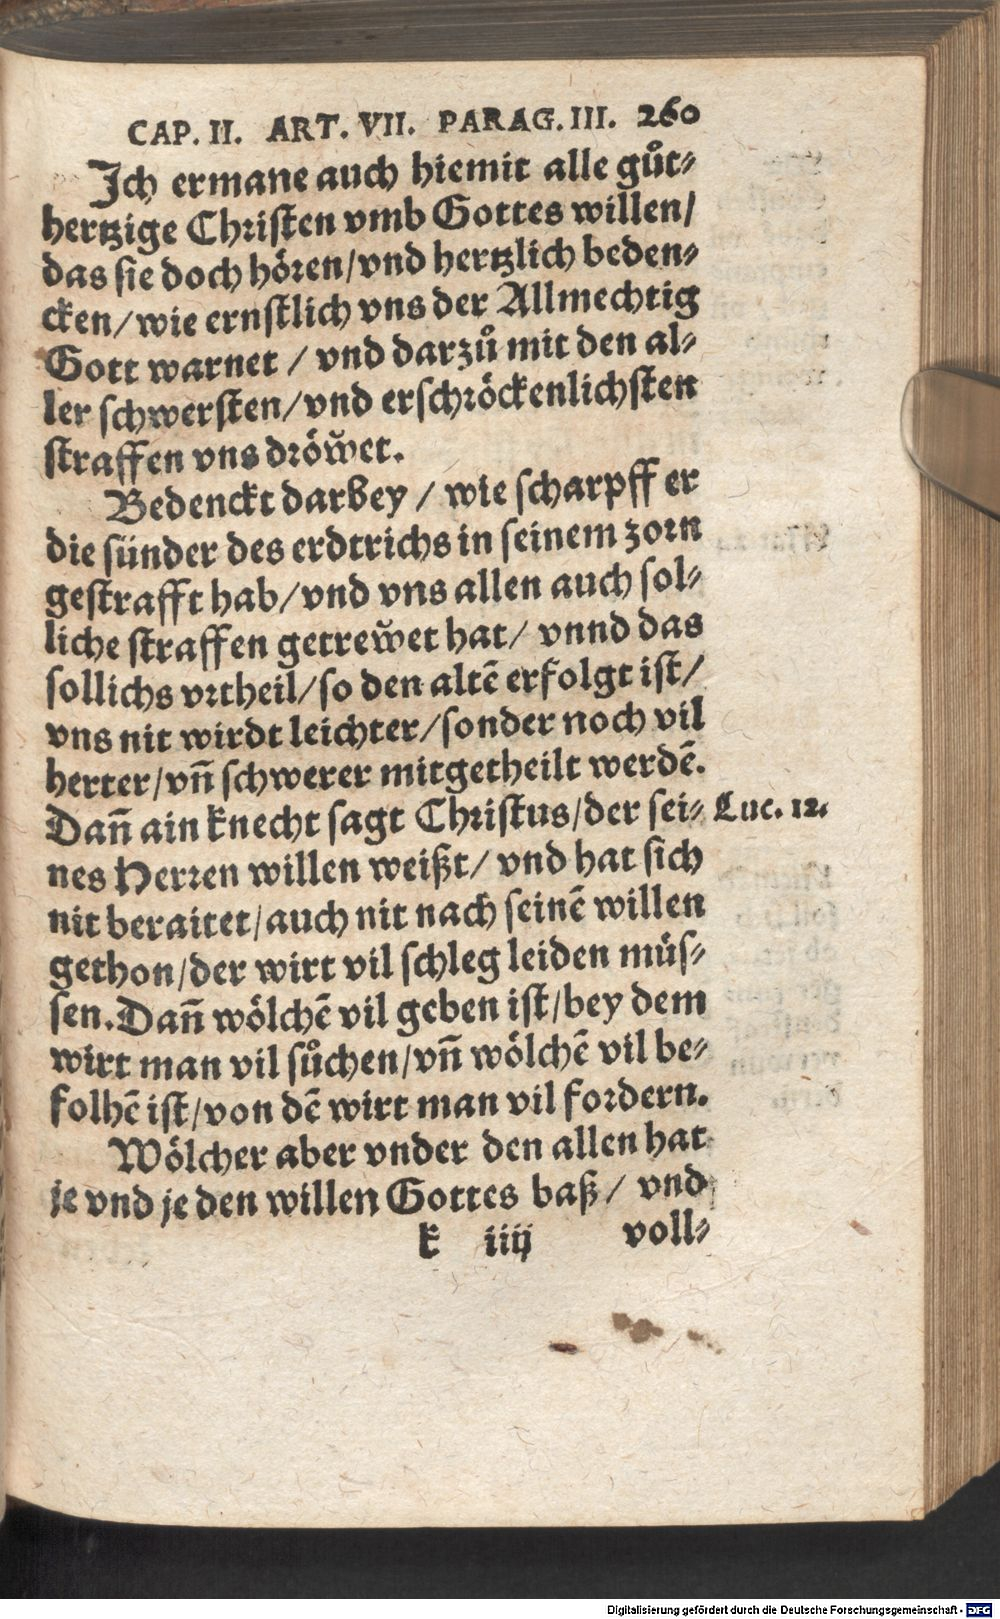 CAP. II. ART. VII. PARAG. III. 260
Ich ermane auch hiemit alle guͦt⸗
hertzige Christen vmb Gottes willen/
das sie doch hören/vnd hertzlich beden⸗
cken/wie ernstlich vns der Allmechtig
Gott warnet / vnd darzuͦ mit den al⸗
ler schwersten/vnd erschröckenlichsten
straffen vns dröw̆et.
Bedenckt darbey / wie scharpff er
die sünder des erdtrichs in seinem zorn
gestrafft hab/vnd vns allen auch sol⸗
liche straffen getrew̆et hat/ vnnd das
sollichs vrtheil/so den altē erfolgt ist/
vns nit wirdt leichter/sonder noch vil
herter/vn̄ schwerer mitgetheilt werdē.
Dan̄ ain knecht sagt Christus/der sei⸗ Luc. 12.
nes Herren willen weißt/ vnd hat sich
nit beraitet/auch nit nach seinē willen
gethon/der wirt vil schleg leiden müs⸗
sen.Dan̄ wölchē vil geben ist/bey dem
wirt man vil suͦchen/vn̄ wölchē vil be⸗
folhē ist/von dē wirt man vil fordern.
Wölcher aber vnder den allen hat
je vnd je den willen Gottes baß/ vnd
k iiij voll⸗
Digitalisierung gefördert durch die Deutsche Forschungsgemeinschaft - DFG